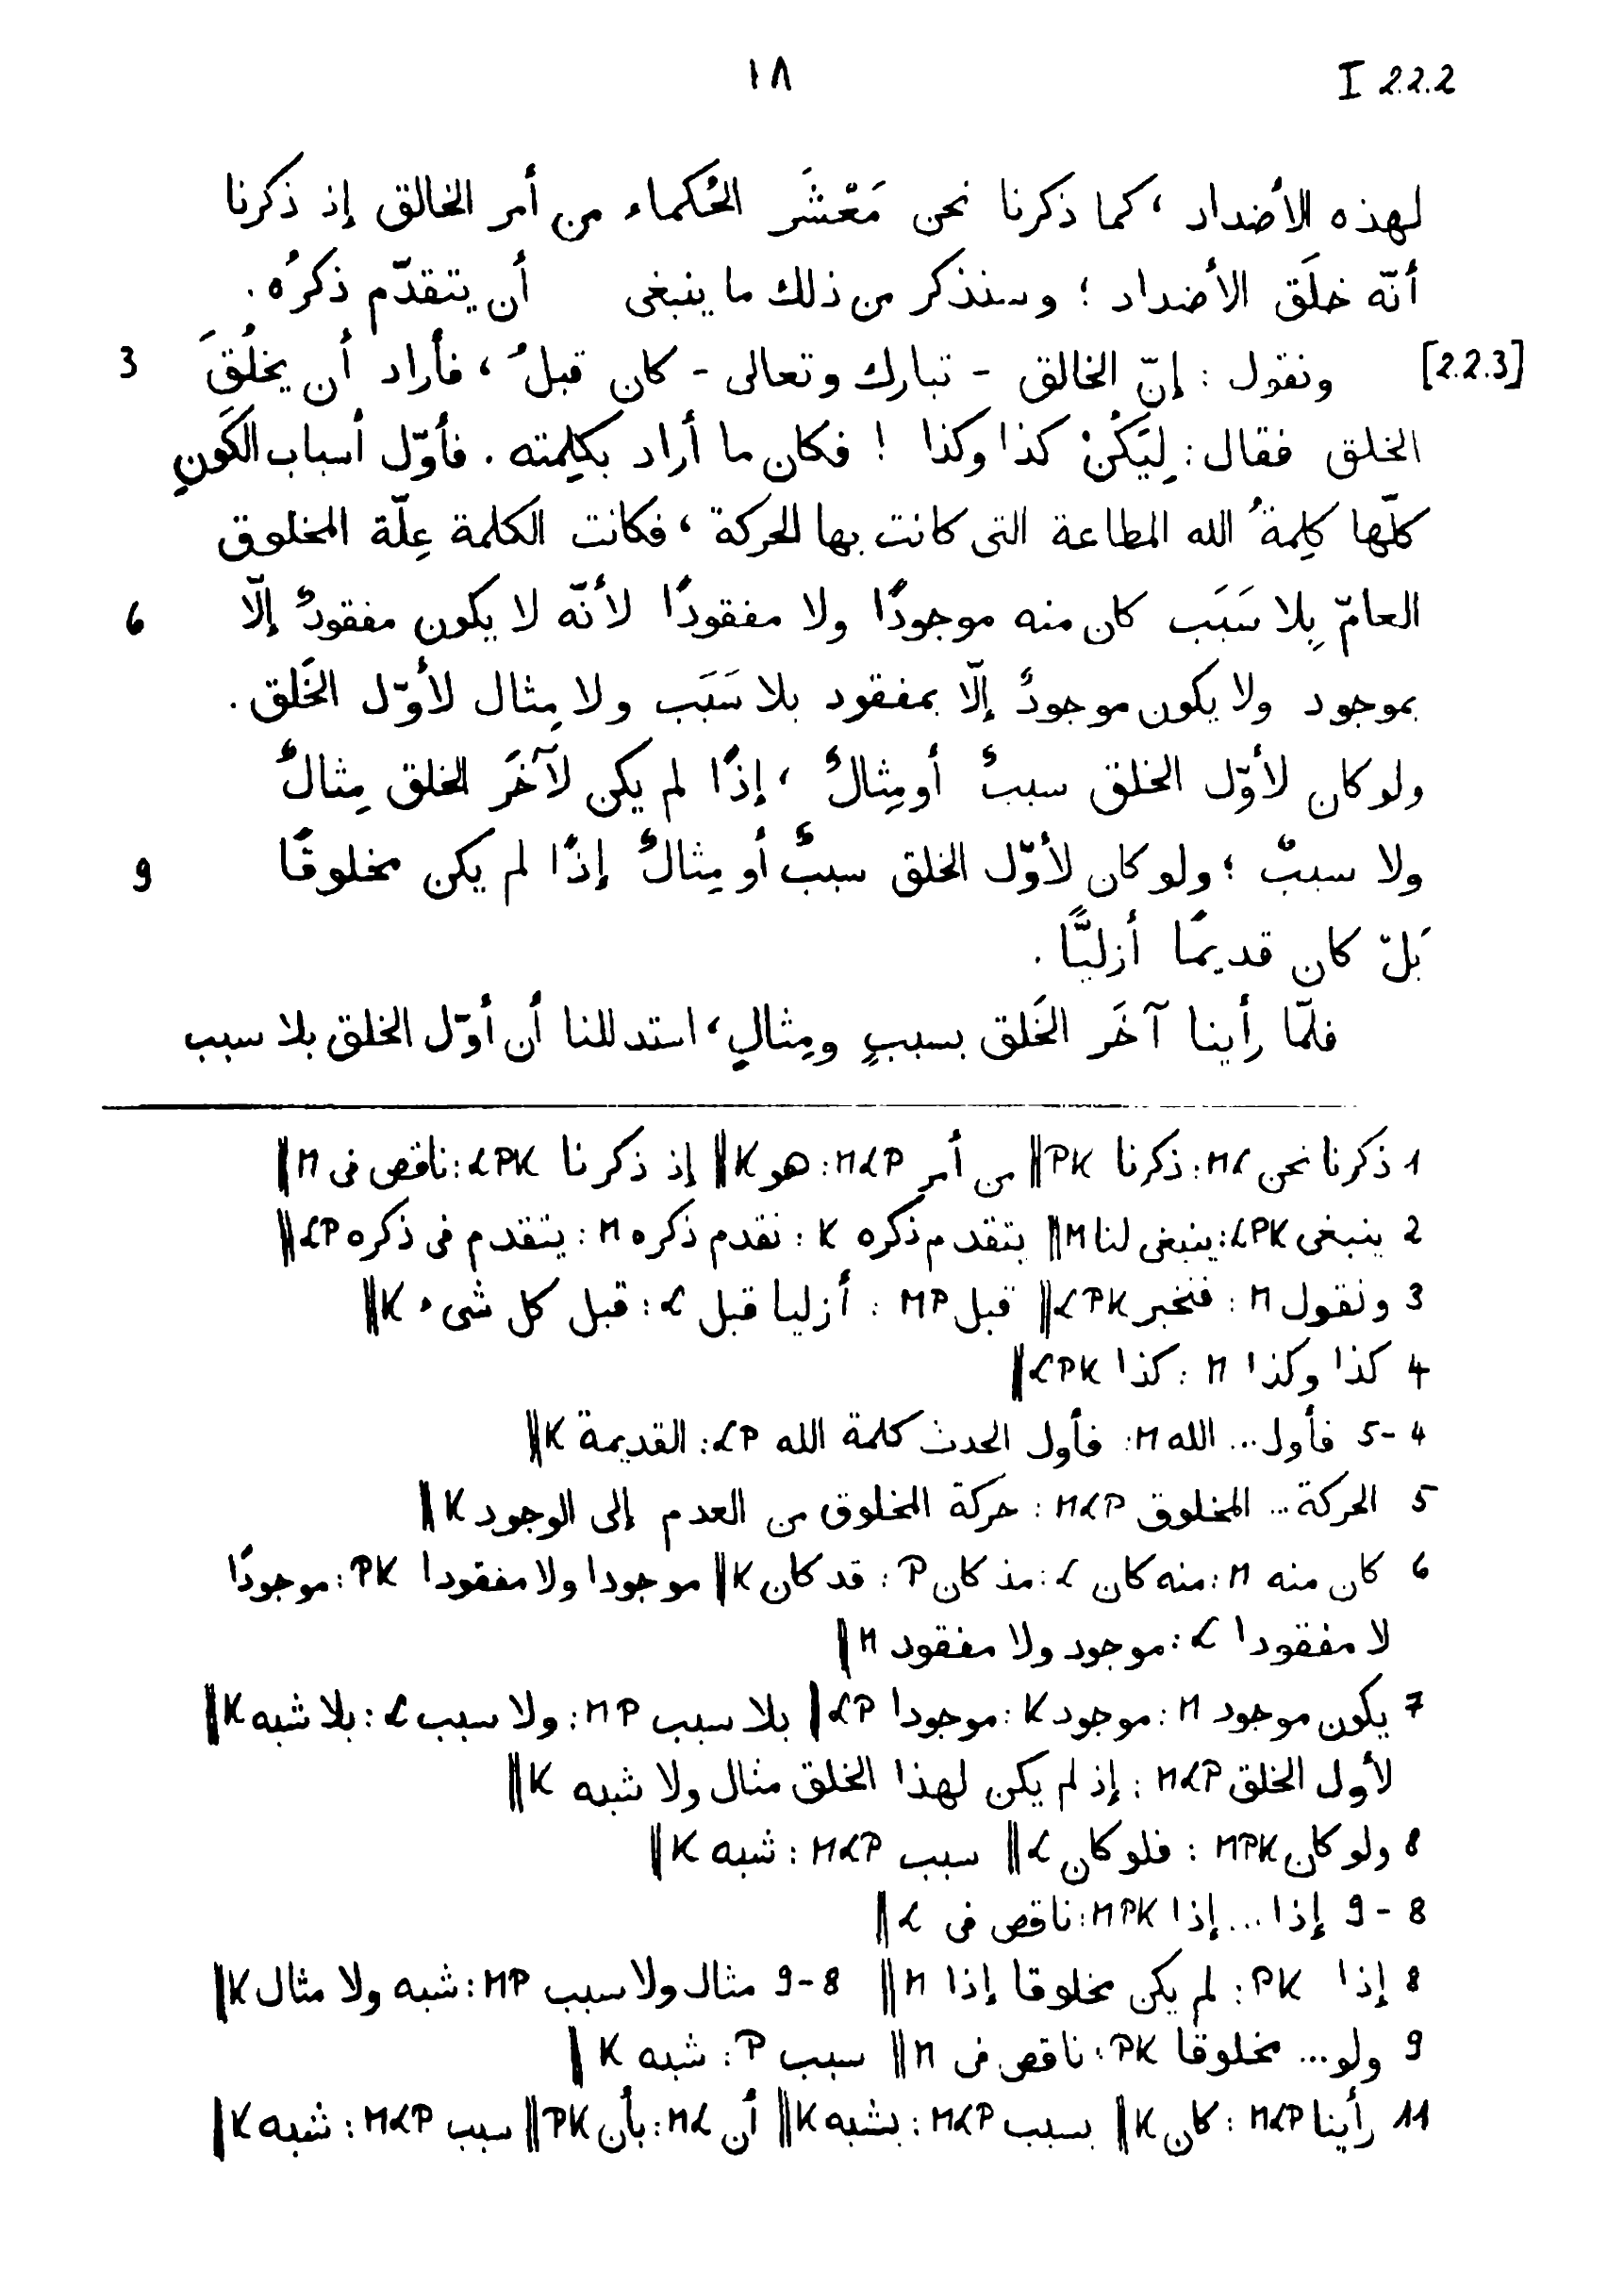 ١٨ I 2.2.2
لهذه الأضداد ، كما ذكرنا نحن مَعْشَر الحُكماء من أمر الخالق إذ ذكرنا
أنّه خلَق الأضداد ؛ وسنذكر من ذلك ما ينبغى أن يتقدّم ذكرُه .
[2.2.3] ونقول : إنّ الخالق - تبارك وتعالى - كان قبلُ ، فأراد أن يخلُقَ 3
الخلق فقال : لِيَكُنْ كذا وكذا ! فكان ما أراد بكلِمته . فأوّل أسباب الكَونِ
كلّها كلِمةُ الله المطاعة التى كانت بها الحركة ، فكانت الكلمة عِلّة المخلوق
العامّ بِلا سَبَب كان منه موجودًا ولا مفقودًا لأنّه لا يكون مفقودٌ إلّا 6
بموجود ولا يكون موجودٌ إلّا بمفقود بلا سَبَب ولا مِثال لأوّل الخَلق .
ولو كان لأوّل الخلق سببٌ أو مِثالٌ ، إذًا لم يكن لآخَر الخلق مِثالٌ
ولا سببٌ ؛ ولو كان لأوّل الخلق سببٌ أو مِثالٌ إذًا لم يكن مخلوقًا 9
بَلْ كان قديمًا أزليًّا .
فلمّا رأينا آخَر الخَلق بسببٍ ومِثالٍ ، استدللنا أن أوّل الخلق بلا سبب
1 ذكرنا نحن ML : ذكرنا PK || من أمر MLP : هو K || إذ ذكرنا LPK : ناقص فى M ||
2 ينبغى LPK : ينبغى لنا M || يتقدم ذكره K : نقدم ذكره M : يتقدم فى ذكره LP ||
3 ونقول M : فنخبر LPK || قبل MP : أزليا قبل L : قبل كل شىء K ||
4 كذا وكذا M : كذا LPK ||
4-5 فأول ... الله M : فأول الحدث كلمة الله LP : القديمة K ||
5 الحركة ... المخلوق MLP : حركة المخلوق من العدم إلى الوجود K ||
6 كان منه M : منه كان L : مذ كان P : قد كان K || موجودا ولا مفقودا PK : موجودًا
لا مفقودا L : موجود ولا مفقود M ||
7 يكون موجود M : موجود K : موجودا LP || بلا سبب MP : ولا سبب L : بلا شبه K ||
لأول الخلق MLP : إذ لم يكن لهذا الخلق مثال ولا شبه K ||
8 ولو كان MPK : فلو كان L || سبب MLP : شبه K ||
8-9 إذا ... إذا MPK : ناقص فى L ||
8 إذا PK : لم يكن مخلوقا إذا M || 8-9 مثال ولا سبب MP : شبه ولا مثال K ||
9 ولو ... مخلوقا PK : ناقص فى M || سبب P : شبه K ||
11 رأينا MLP : كان K || بسبب MLP : بشبه K || أن ML : بأن PK || سبب MLP : شبه K ||